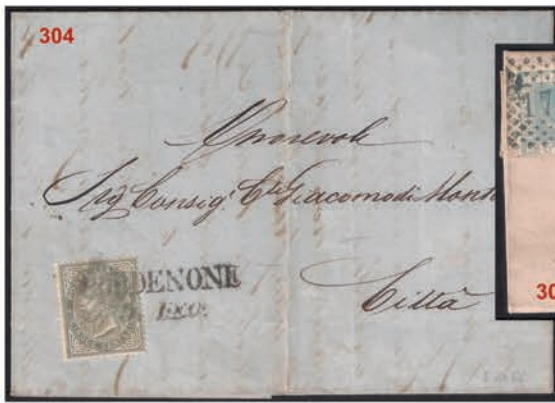 304
Onorevole
Sig Consigr Cte Giacomo di Mont
Città
DENONE
30
17